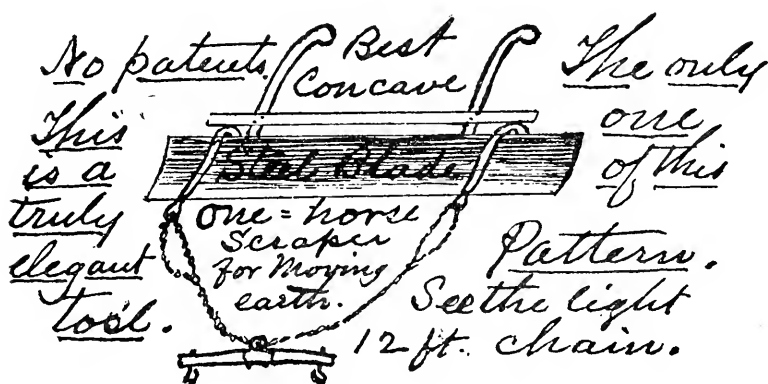 No patents.
This
is a
truly
elegant
tool.
Best
Concave
Steel Blade
one=horse
Scraper
for Moving
earth.
The only
one
of this
Pattern.
See the light
12 ft. chain.